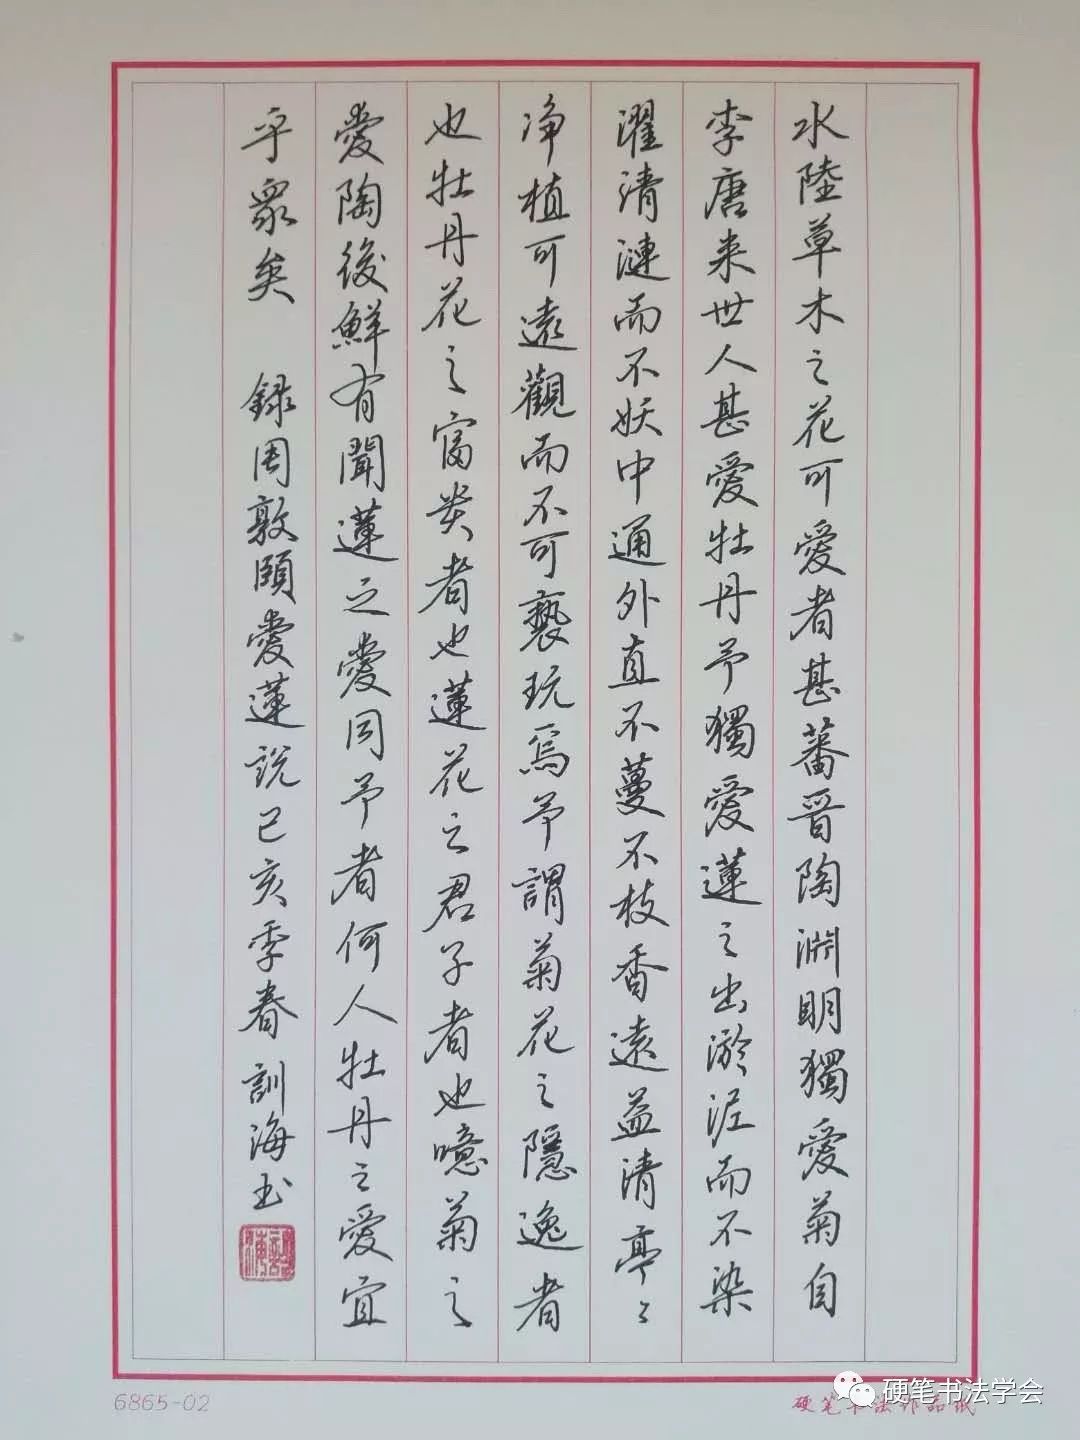 水陸草木之花可爱者甚蕃晋陶淵明獨爱菊自
李唐来世人甚爱牡丹予獨爱蓮之出淤泥而不染
濯清漣而不妖中通外直不蔓不枝香遠益清亭〻
净植可遠觀而不可褻玩焉予謂菊花之隱逸者
也牡丹花之富贵者也蓮花之君子者也噫菊之
愛陶後鮮有聞蓮之愛同予者何人牡丹之爱宜
乎衆矣 録周敦頤愛蓮説己亥季春訓海书
6865-02
硬笔书法作品纸
硬笔书法学会